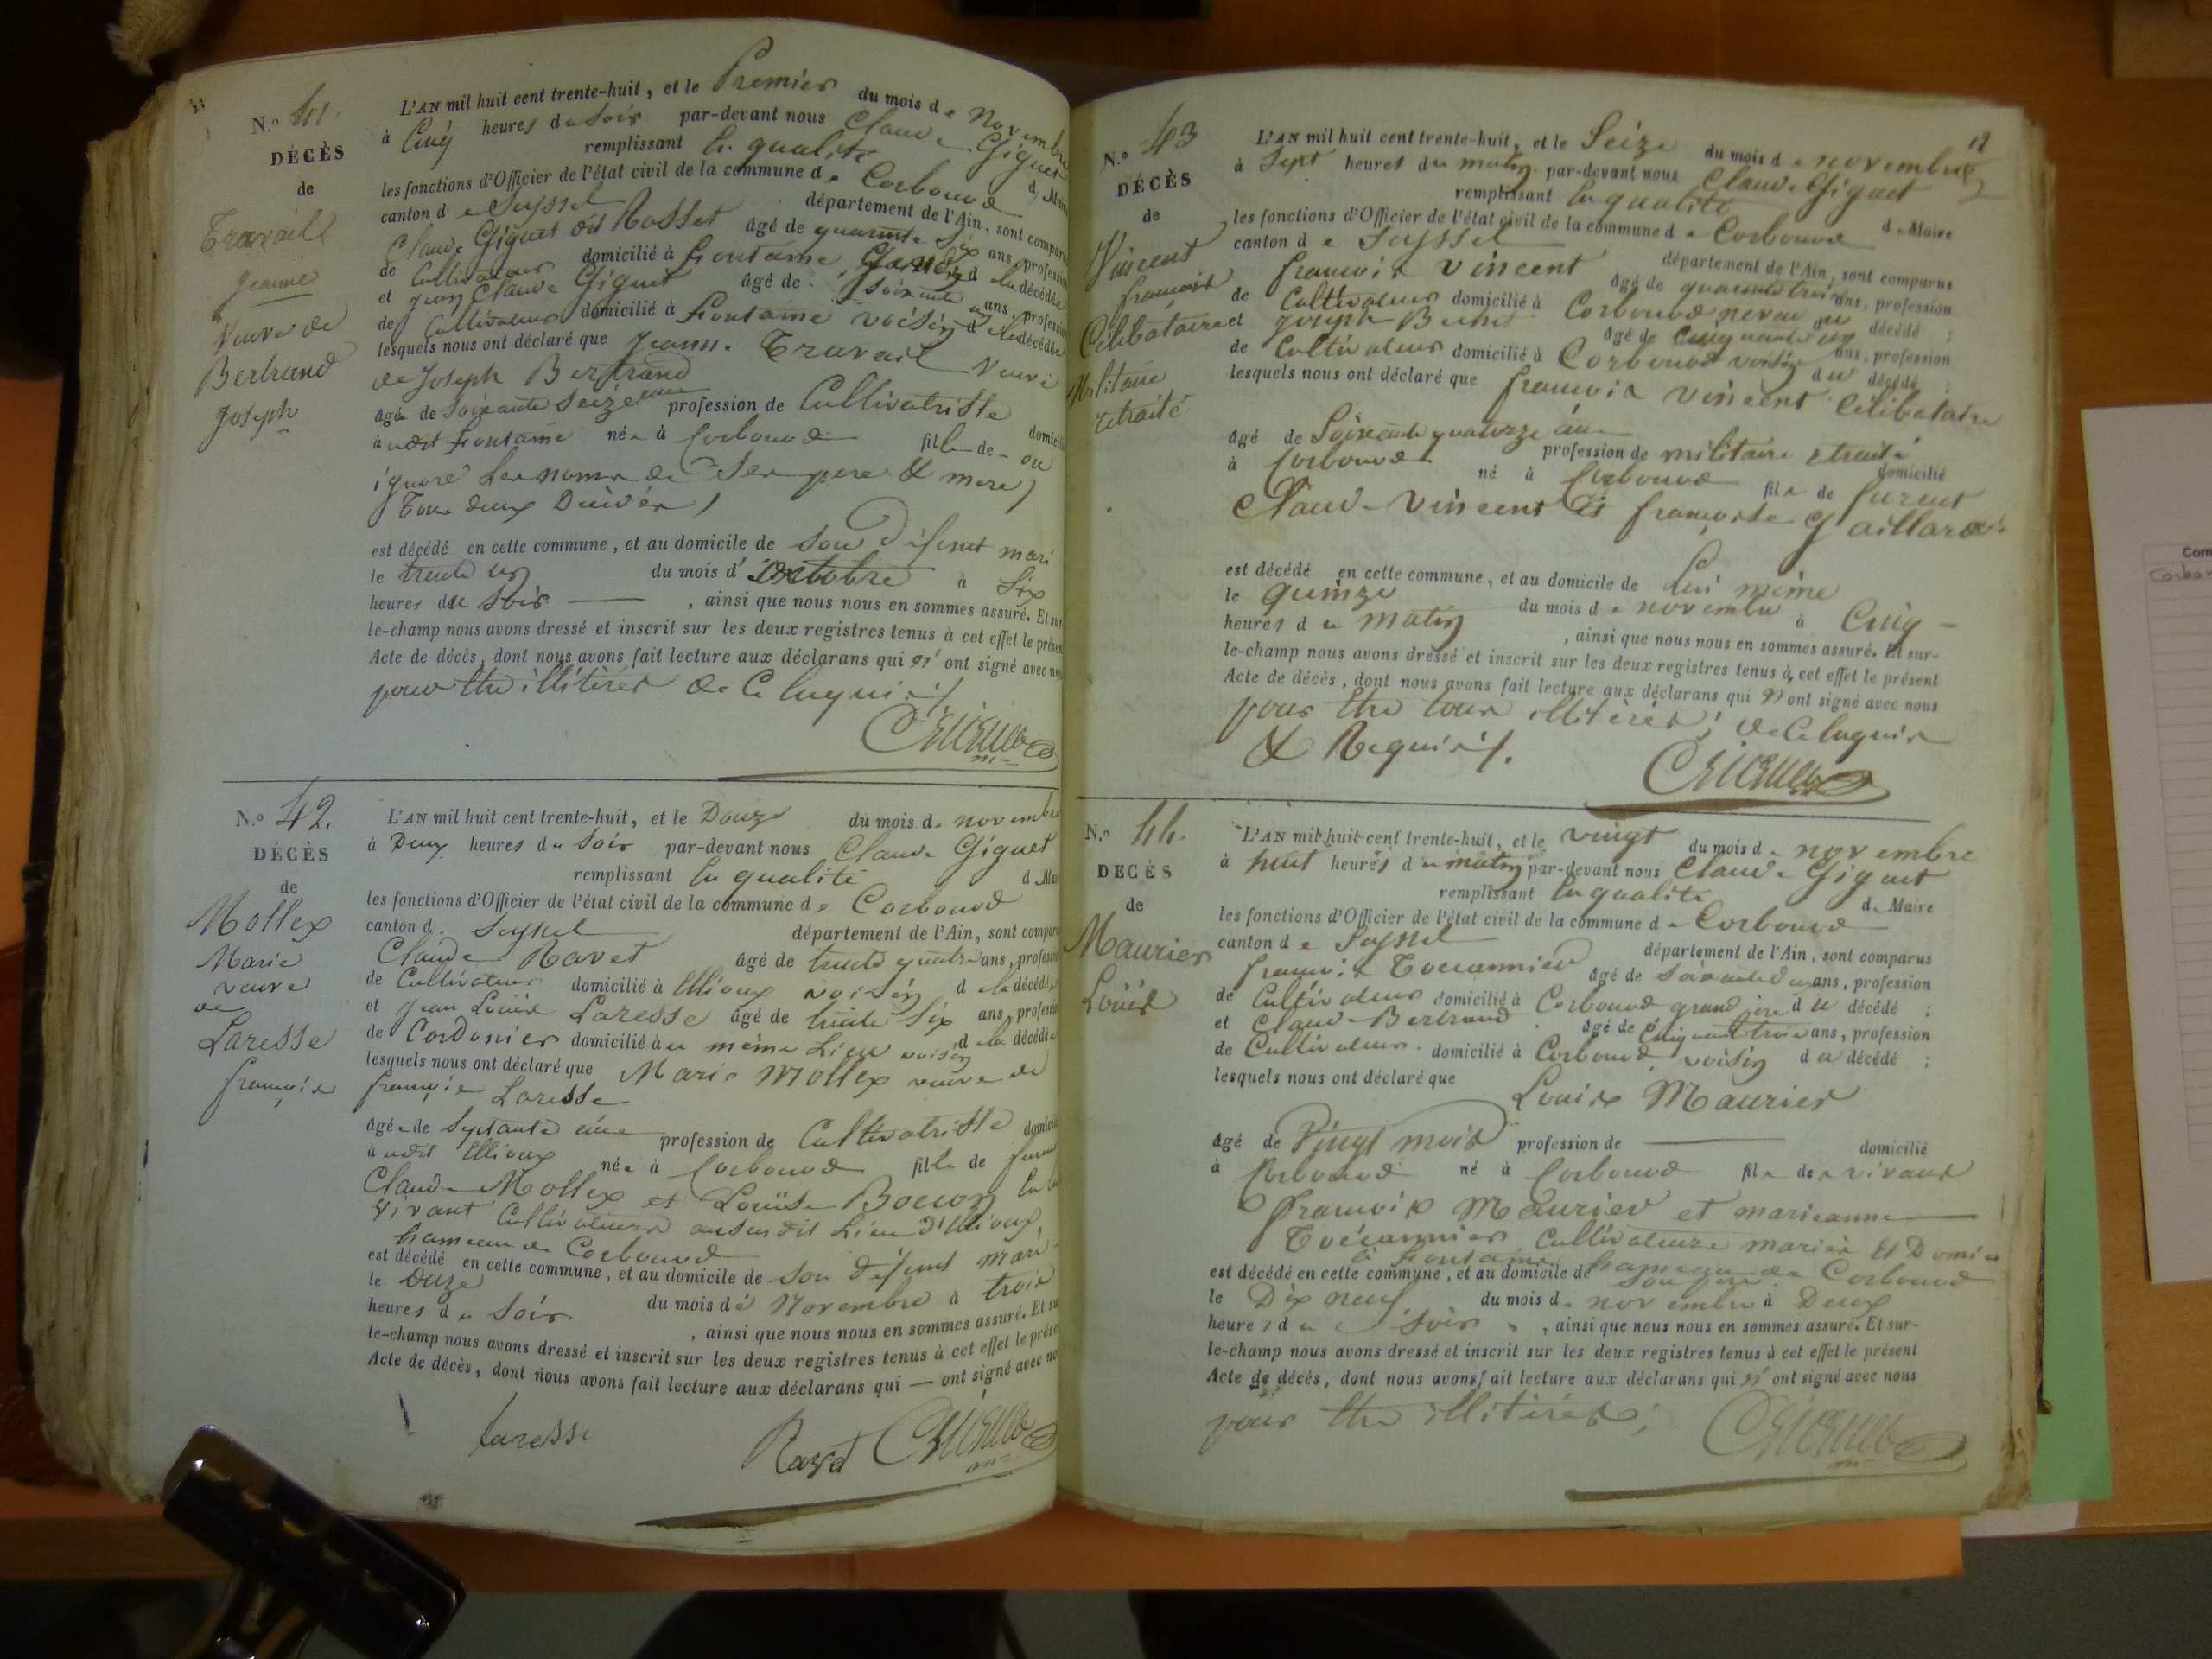 N.o 41.
DÉCÈS
de
Travail
Jeanne
Veuve de
Bertrand
Joseph
L'AN mil huit cent trente-huit, et le Premier du mois de Novembre
à Cinq heures du Soir par-devant nous Claude Giguet
remplissant la qualité de Maire
les fonctions d'Officier de l'état civil de la commune de Corbonod
canton de Seyssel département de l'Ain, sont comparus
Claude Giguet dit Rosset âgé de quarante Six ans, profession
de Cultivateur domicilié à Fontaine de la décédée
et Jean Claude Giguet âgé de Soixante ans, profession
de Cultivateur domicilié à Fontaine voisin de la décédée
lesquels nous ont déclaré que Jeanne Travail Veuve
de Joseph Bertrand
âgée de Soixante Seize ans profession de Cultivatrisse domiciliée
à udit Fontaine née à Corbonod fille de on
ignore les noms de Ses pere & mere,
Tous deux Décédés,
est décédé en cette commune, et au domicile de Son Défunt mari
le trente un du mois d'Octobre à Six
heures du Soir, ainsi que nous nous en sommes assuré. Et sur-
le-champ nous avons dressé et inscrit sur les deux registres tenus à cet effet le présent
Acte de décès, dont nous avons fait lecture aux déclarans qui n'ont signé avec nous
pour être illitérés de ce luquis.
N.o 42.
DÉCÈS
de
Mollex
Marie
veuve
de
Laresse
françois
L'AN mil huit cent trente-huit, et le Douze du mois de novembre
à Deux heures du Soir par-devant nous Claude Giguet
remplissant la qualité de Maire
les fonctions d'Officier de l'état civil de la commune de Corbonod
canton de Seyssel département de l'Ain, sont comparus
Claude Ravet âgé de trente quatre ans, profession
de Cultivateur domicilié à Ellioux voisin de la décédée
et Jean Louis Laresse âgé de trente Six ans, profession
de Cordonier domicilié à u même Lieu voisin de la décédée
lesquels nous ont déclaré que Marie Mollex veuve de
françois Laresse
âgée de Septante une profession de Cultivatrisse domiciliée
à udit Ellioux née à Corbonod fille de furent
Claude Mollex et Louise Bocon en leur
vivant Cultivateurs au susdit Lieu d'Ellioux,
hameau de Corbonod
est décédé en cette commune, et au domicile de Son défunt mari
le Onze du mois de Novembre à trois
heures du Soir, ainsi que nous nous en sommes assuré. Et sur-
le-champ nous avons dressé et inscrit sur les deux registres tenus à cet effet le présent
Acte de décès, dont nous avons fait lecture aux déclarans qui — ont signé avec nous
Laresse Ravet
12
N.o 43
DÉCÈS
de
Vincent
françois
Célibataire
Militaire
retraité
L'AN mil huit cent trente-huit, et le Seize du mois de novembre
à Sept heures du matin par-devant nous Claude Giguet
remplissant la qualité de Maire
les fonctions d'Officier de l'état civil de la commune de Corbonod
canton de Seyssel département de l'Ain, sont comparus
françois Vincent âgé de quarante trois ans, profession
de Cultivateur domicilié à Corbonod neveu du décédé ;
et Joseph âgé de Cinquante un ans, profession
de Cultivateur domicilié à Corbonod voisin du décédé ;
lesquels nous ont déclaré que françois Vincent Célibataire
âgé de Soixante quatorze ans profession de militaire retraité domicilié
à Corbonod né à Corbonod fils de furent
Claude Vincent & françoise Gaillard
est décédé en cette commune, et au domicile de Lui même
le quinze du mois de novembre à Cinq
heures du matin, ainsi que nous nous en sommes assuré. Et sur-
le-champ nous avons dressé et inscrit sur les deux registres tenus à cet effet le présent
Acte de décès, dont nous avons fait lecture aux déclarans qui n'ont signé avec nous
pour être tous illitérés; de ce luquis
& Requis.
N.o 44.
DÉCÈS
de
Maurier
Louis
L'AN mil huit cent trente-huit, et le vingt du mois de novembre
à huit heures du matin par-devant nous Claude Giguet
remplissant la qualité de Maire
les fonctions d'Officier de l'état civil de la commune de Corbonod
canton de Seyssel département de l'Ain, sont comparus
françois Toccannier âgé de Soixante ans, profession
de Cultivateur domicilié à Corbonod grand père du décédé ;
et Claude Bertrand âgé de Cinquante trois ans, profession
de Cultivateur domicilié à Corbonod voisin du décédé ;
lesquels nous ont déclaré que Louis Maurier
âgé de Vingt mois profession de — domicilié
à Corbonod né à Corbonod fils de vivant
françois Maurier et marieanne
Toccannier Cultivateurs mariés Et Domiciliés
à Fontaine hameau de Corbonod
est décédé en cette commune, et au domicile de Son père
le Dix neuf du mois de novembre à Deux
heures du Soir, ainsi que nous nous en sommes assuré. Et sur-
le-champ nous avons dressé et inscrit sur les deux registres tenus à cet effet le présent
Acte de décès, dont nous avons fait lecture aux déclarans qui n'ont signé avec nous
pour être illitérés;